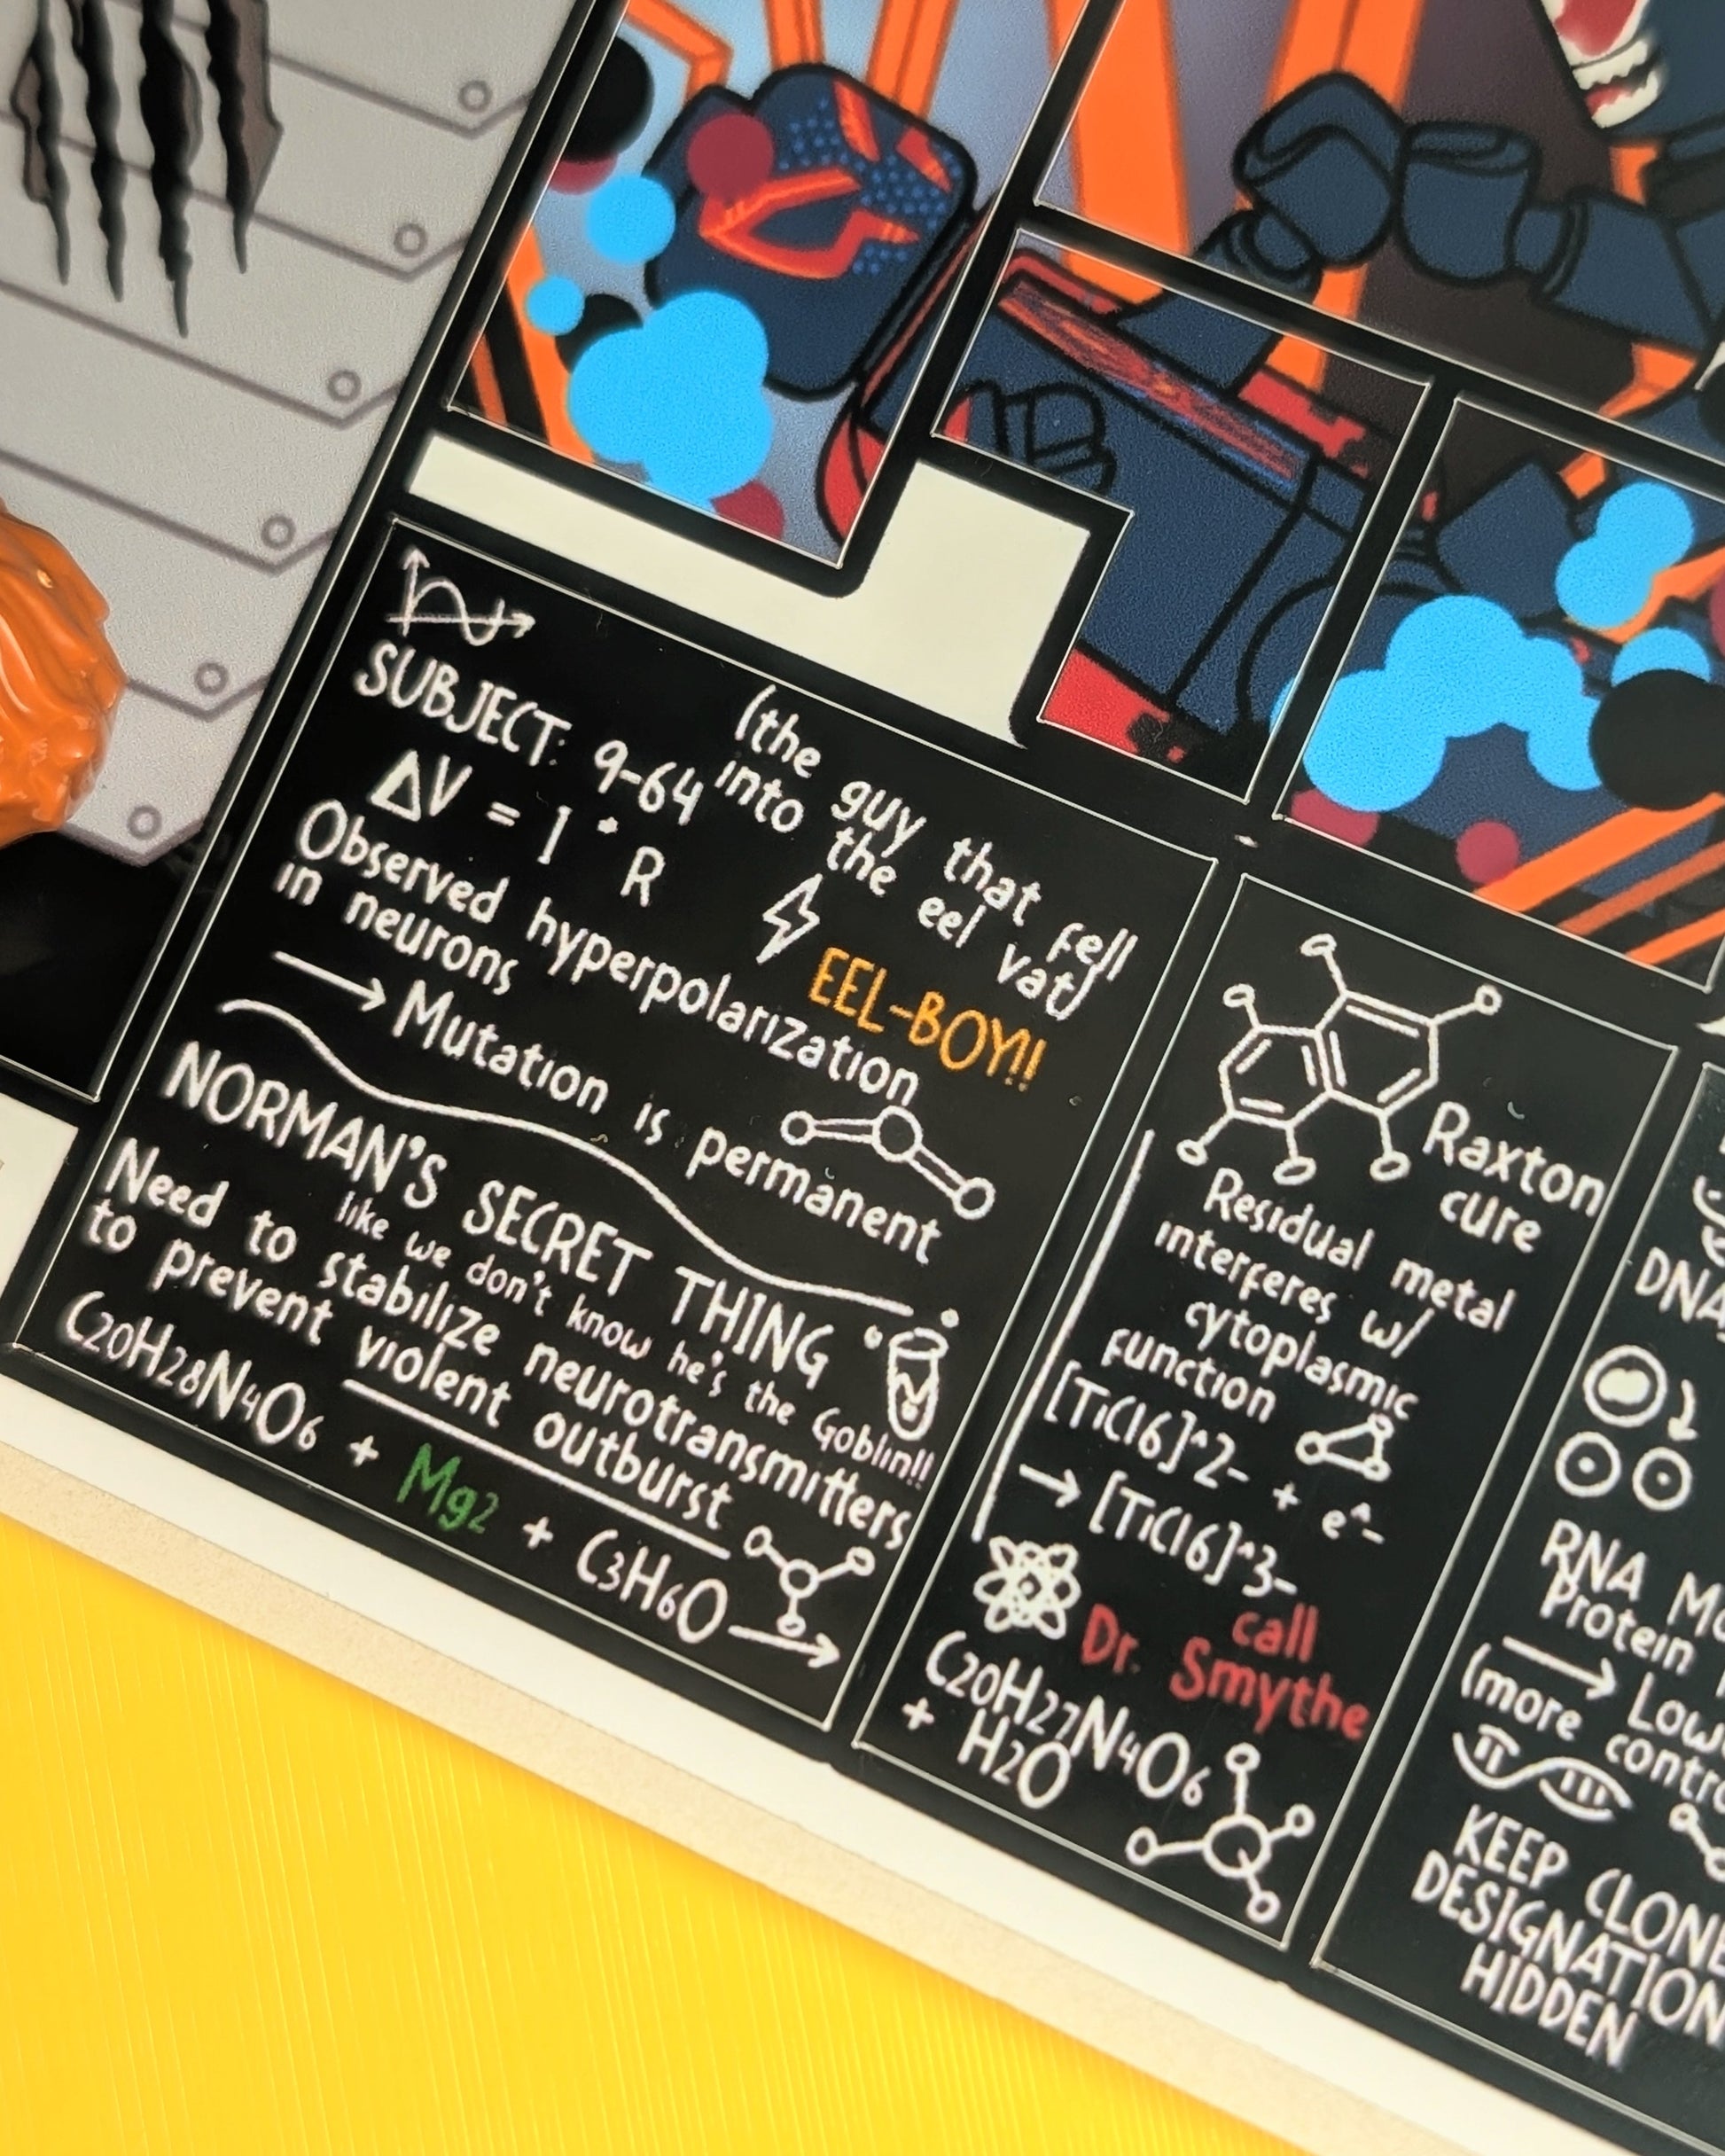 SUBJECT: 9-64
(the guy that fell
into the eel vat)
ΔV = I * R
EEL-BOY!!
Observed hyperpolarization
in neurons
→ Mutation is permanent
NORMAN'S SECRET THING
like we don't know he's the Goblin!!
Need to stabilize neurotransmitters
to prevent violent outburst
C20H28N4O6 + Mg2 + C3H6O →
Raxton
cure
Residual metal
interferes w/
cytoplasmic
function
[TiCl6]^2- + e^-
→ [TiCl6]^3-
call
Dr. Smythe
C20H27N4O6
+ H2O
DNA
RNA
Protein
→
(more
KEEP CLONE
DESIGNATION
HIDDEN